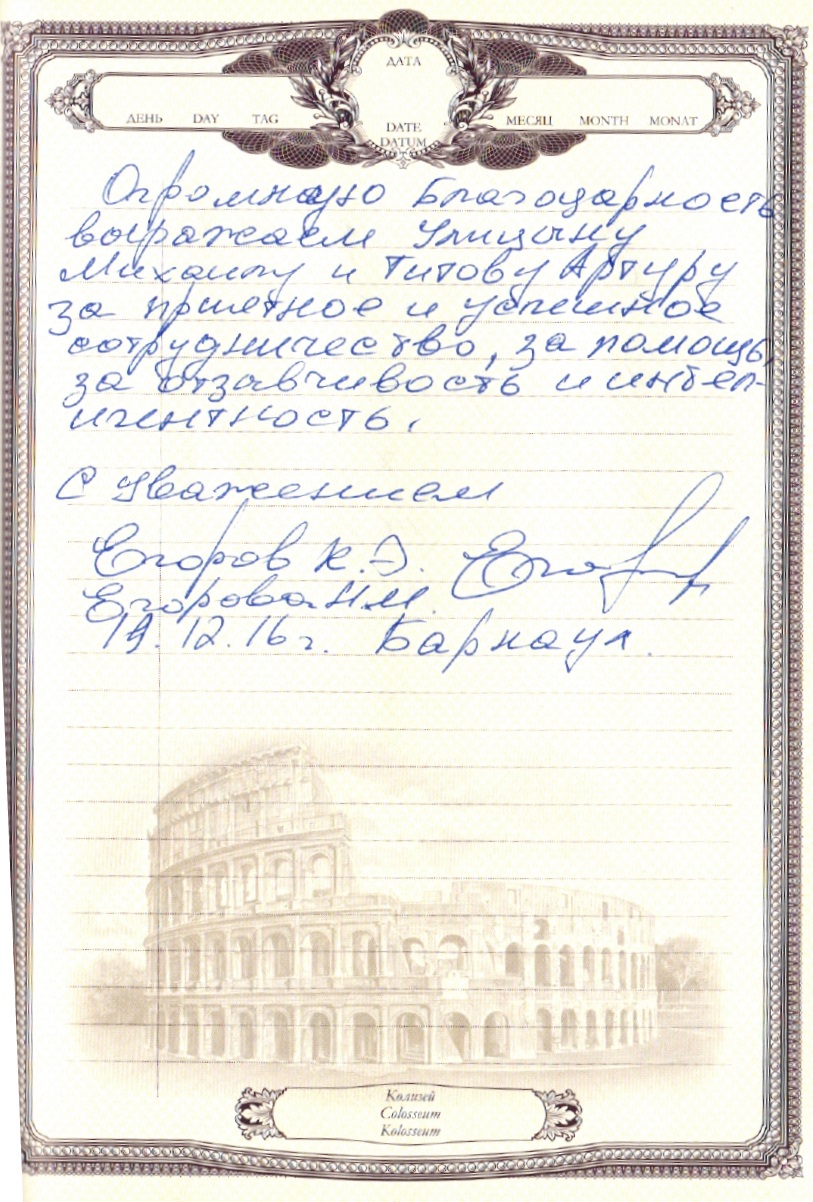 ДАТА
ДЕНЬ DAY TAG
DATE
DATUM
МЕСЯЦ MONTH MONAT
Огромную Благодарность
выражаем
Михаилу и Титову Артуру
за приятное и успешное
сотрудничество, за помощь,
за отзавчивость и интел-
игентность.
С Уважением
Егоров К.Э.
Егорова Н.М.
19.12.16 г. Барнаул.
Колизей
Colosseum
Kolosseum